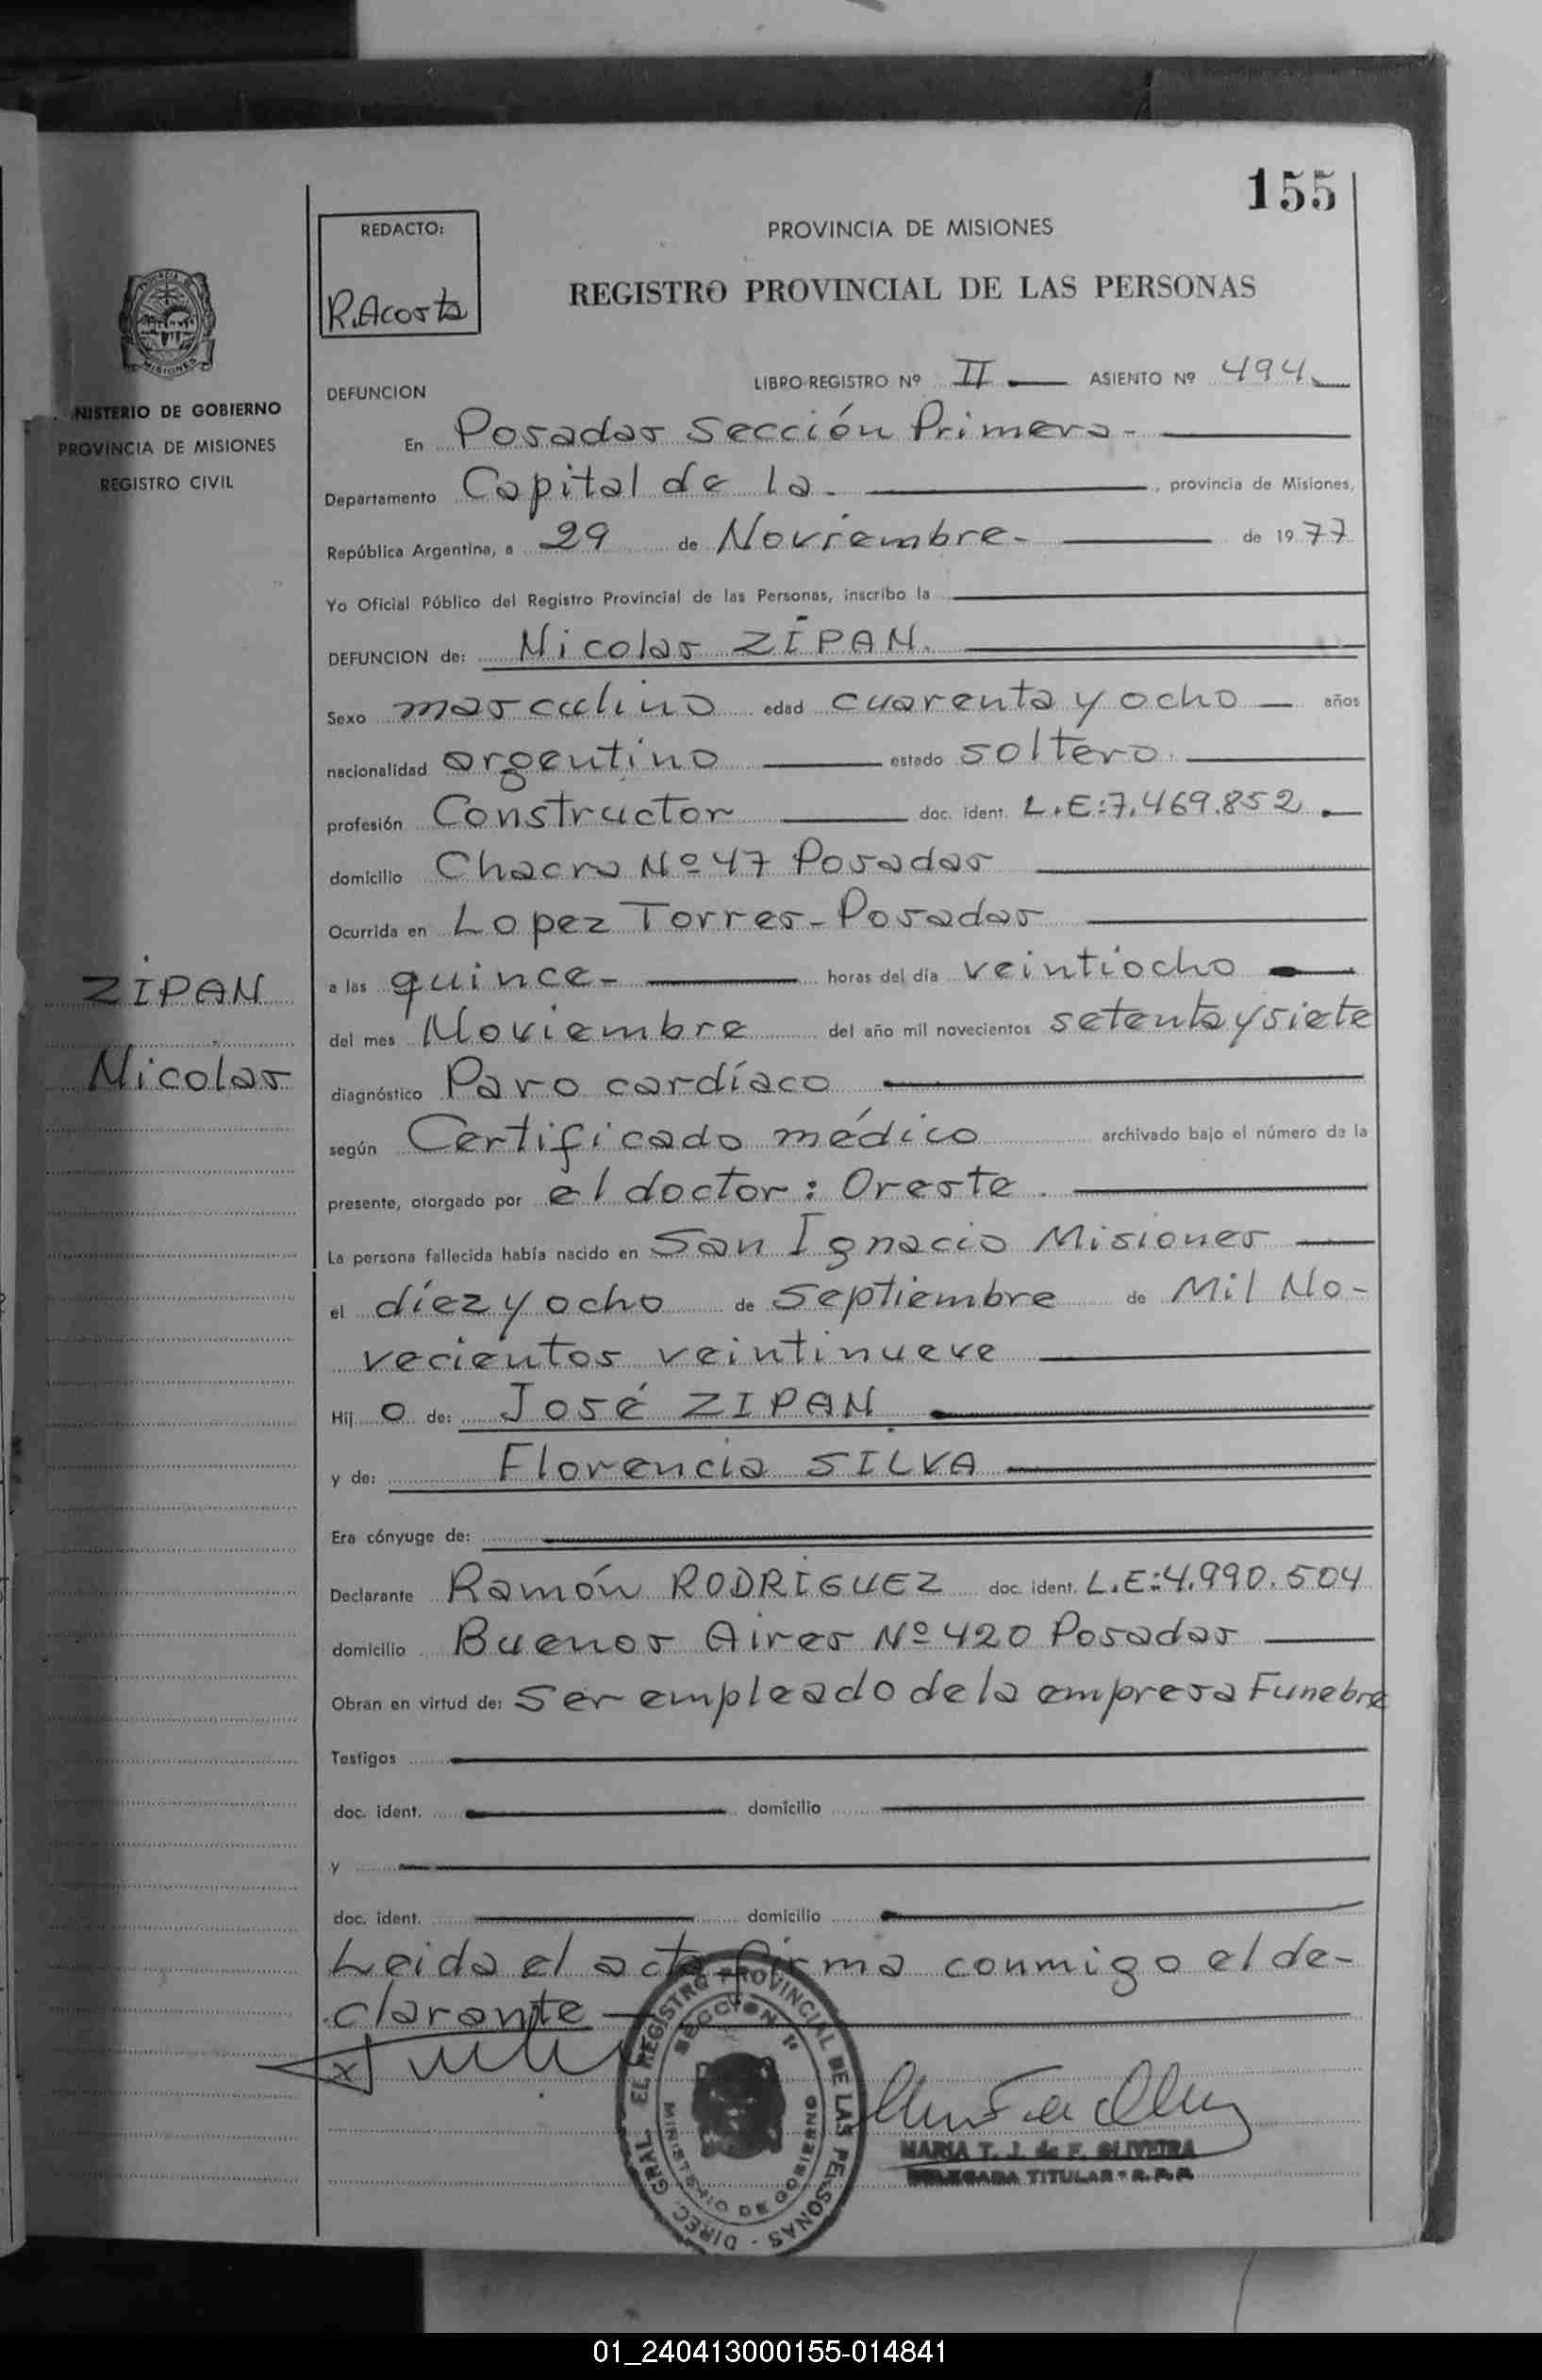 155
REDACTO:
R. Acosta
PROVINCIA DE MISIONES
REGISTRO PROVINCIAL DE LAS PERSONAS
MISIONES
NISTERIO DE GOBIERNO
PROVINCIA DE MISIONES
REGISTRO CIVIL
DEFUNCION LIBRO-REGISTRO Nº II ASIENTO Nº 494
En Posadas Sección Primera-
Departamento Capital de la , provincia de Misiones,
República Argentina, a 29 de Noviembre- de 1977
Yo Oficial Público del Registro Provincial de las Personas, inscribo la
DEFUNCION de: Nicolas ZIPAN.
Sexo masculino edad cuarenta y ocho años
nacionalidad argentino estado soltero
profesión Constructor doc. ident. L.E:7.469.852
domicilio Chacra Nº 47 Posadas
Ocurrida en Lopez Torres-Posadas
ZIPAN
Nicolas
a las quince- horas del día veintiocho
del mes Noviembre del año mil novecientos setenta y siete
diagnóstico Paro cardíaco
según Certificado médico archivado bajo el número de la
presente, otorgado por el doctor: Oreste
La persona fallecida había nacido en San Ignacio Misiones
el díez y ocho de Septiembre de Mil No-
vecientos veintinueve
Hij o de: José ZIPAN
y de: Florencia SILVA
Era cónyuge de:
Declarante Ramón RODRIGUEZ doc. ident. L.E:4.990.504
domicilio Buenos Aires Nº 420 Posadas
Obran en virtud de: Ser empleado de la empresa Funebre
Testigos
doc. ident. domicilio
y
doc. ident. domicilio
Leida el acta firma conmigo el de-
clarante
DIREC. GRAL. EL REGISTRO PROVINCIAL DE LAS PERSONAS
SECCION 1ª
MINISTERIO DE GOBIERNO
MARIA T. J. de F. OLIVEIRA
DELEGADA TITULAR - R.P.P.
01_240413000155-014841